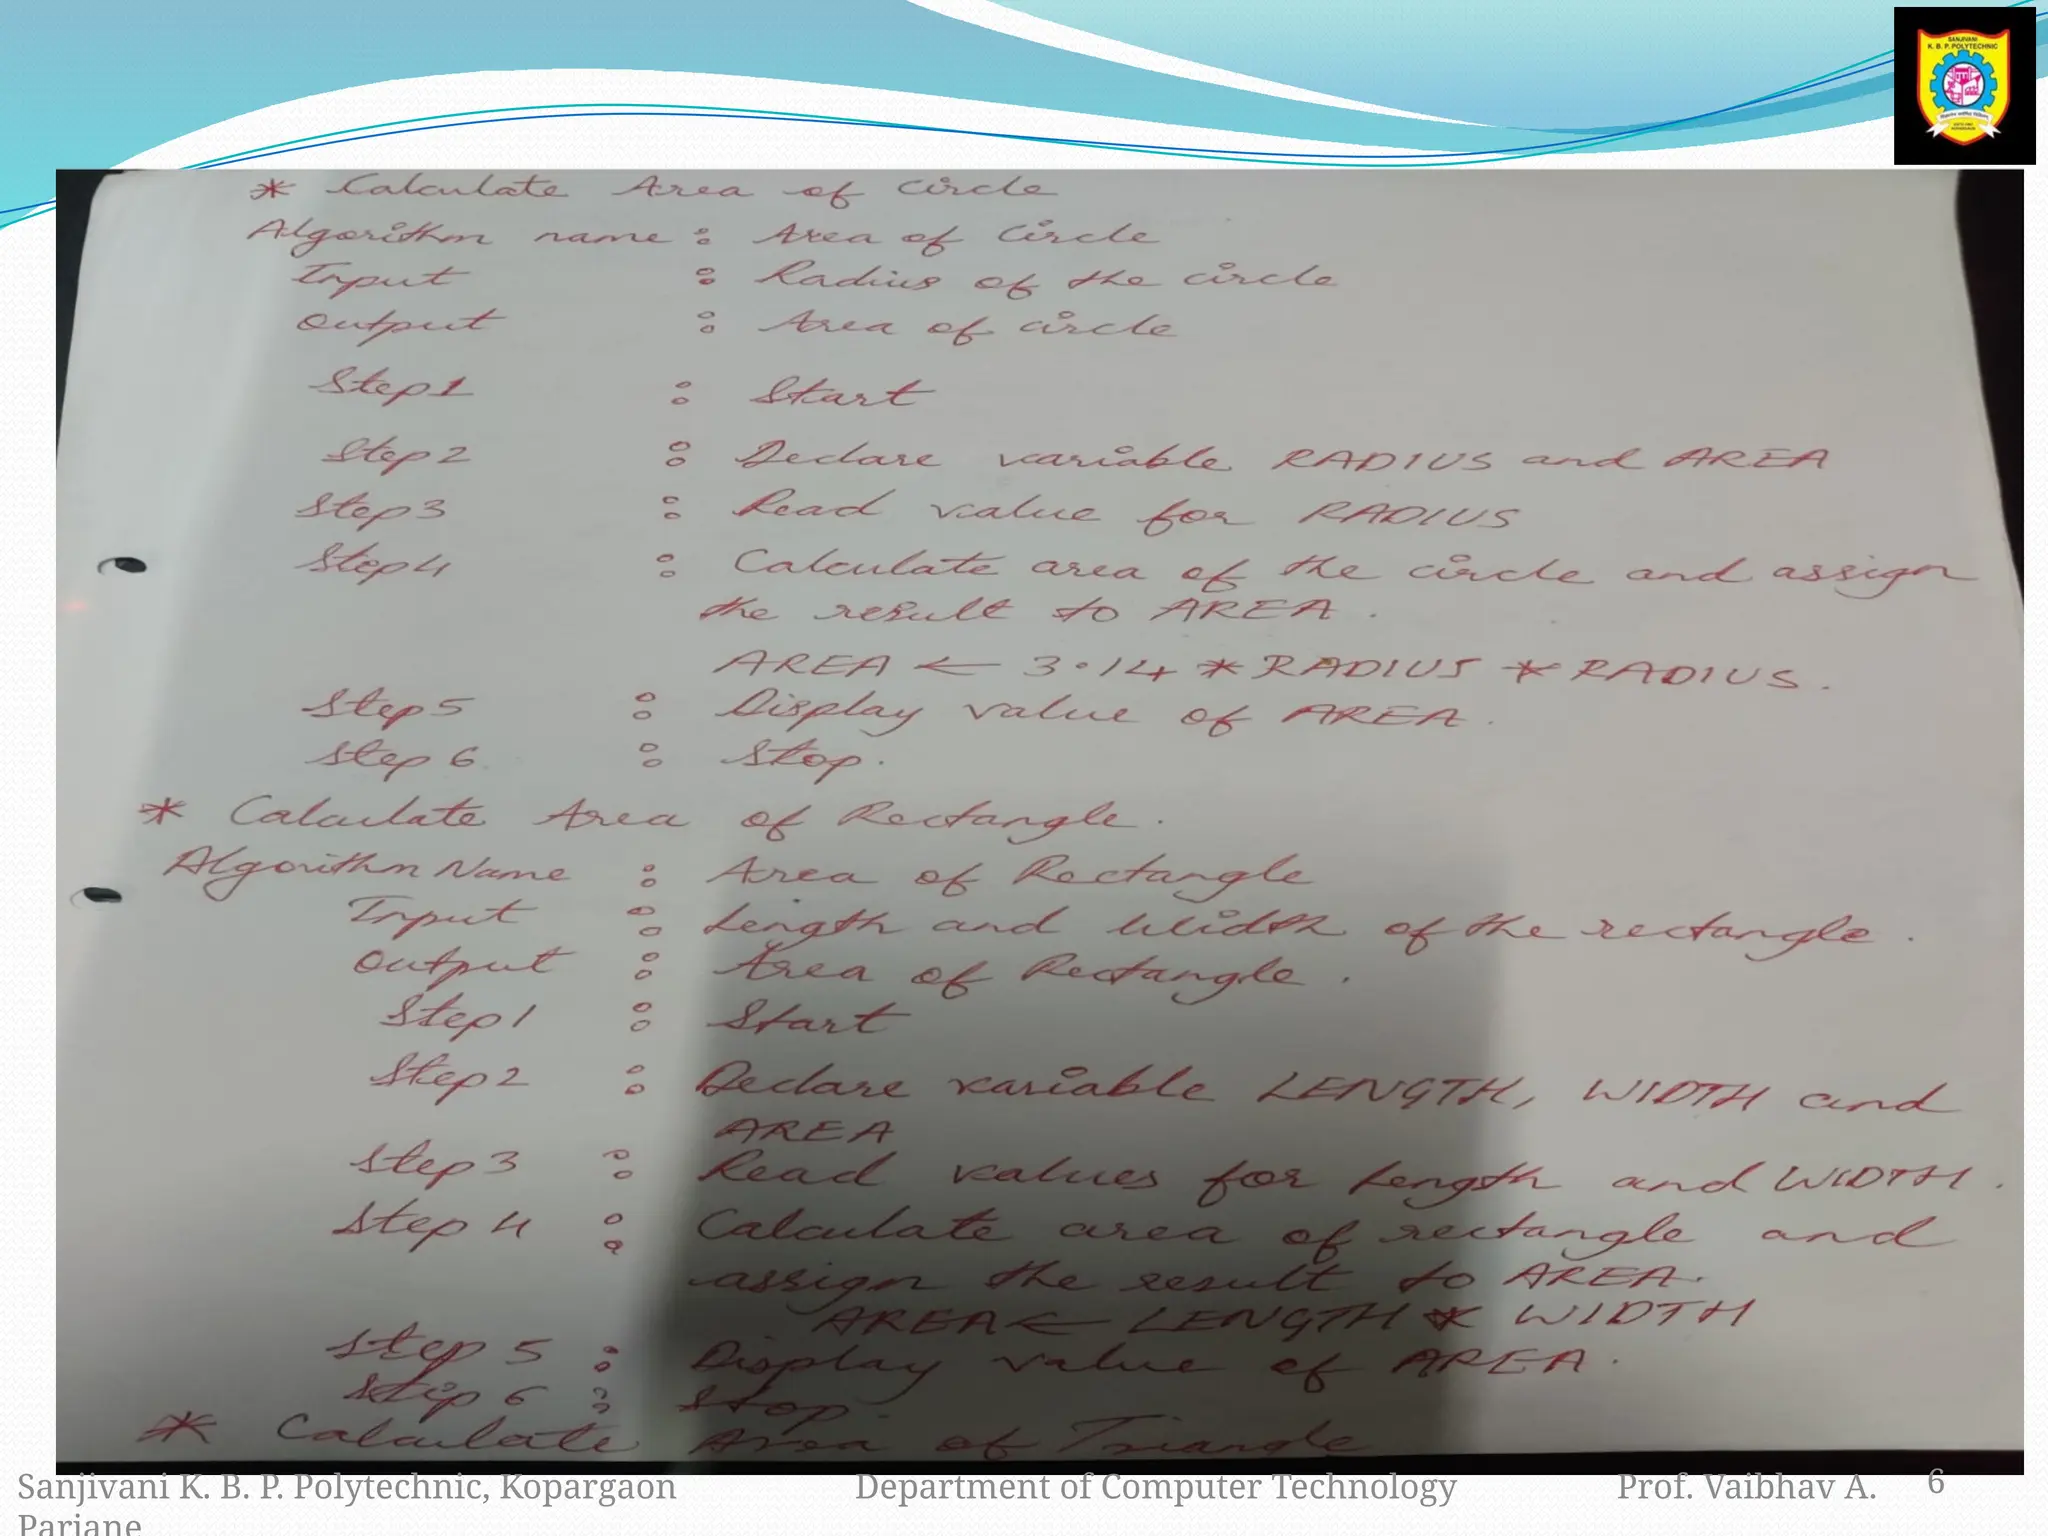 SANJIVANI
K. B. P. POLYTECHNIC
* Calculate Area of circle
Algorithm name : Area of Circle
Input : Radius of the circle
Output : Area of circle
Step1 : Start
Step2 : Declare variable RADIUS and AREA
Step3 : Read value for RADIUS
Step4 : Calculate area of the circle and assign
the result to AREA.
AREA ← 3.14 * RADIUS * RADIUS.
Step5 : Display value of AREA.
Step 6 : Stop.
* Calculate Area of Rectangle.
Algorithm Name : Area of Rectangle
Input : Length and Width of the rectangle.
Output : Area of Rectangle.
Step1 : Start
Step2 : Declare variable LENGTH, WIDTH and
AREA
Step3 : Read values for Length and WIDTH.
Step 4 : Calculate area of rectangle and
assign the result to AREA.
AREA ← LENGTH * WIDTH
Step 5 : Display value of AREA.
Step 6 : Stop.
* Calculate Area of Triangle
Sanjivani K. B. P. Polytechnic, Kopargaon Department of Computer Technology Prof. Vaibhav A. 6
Parjane